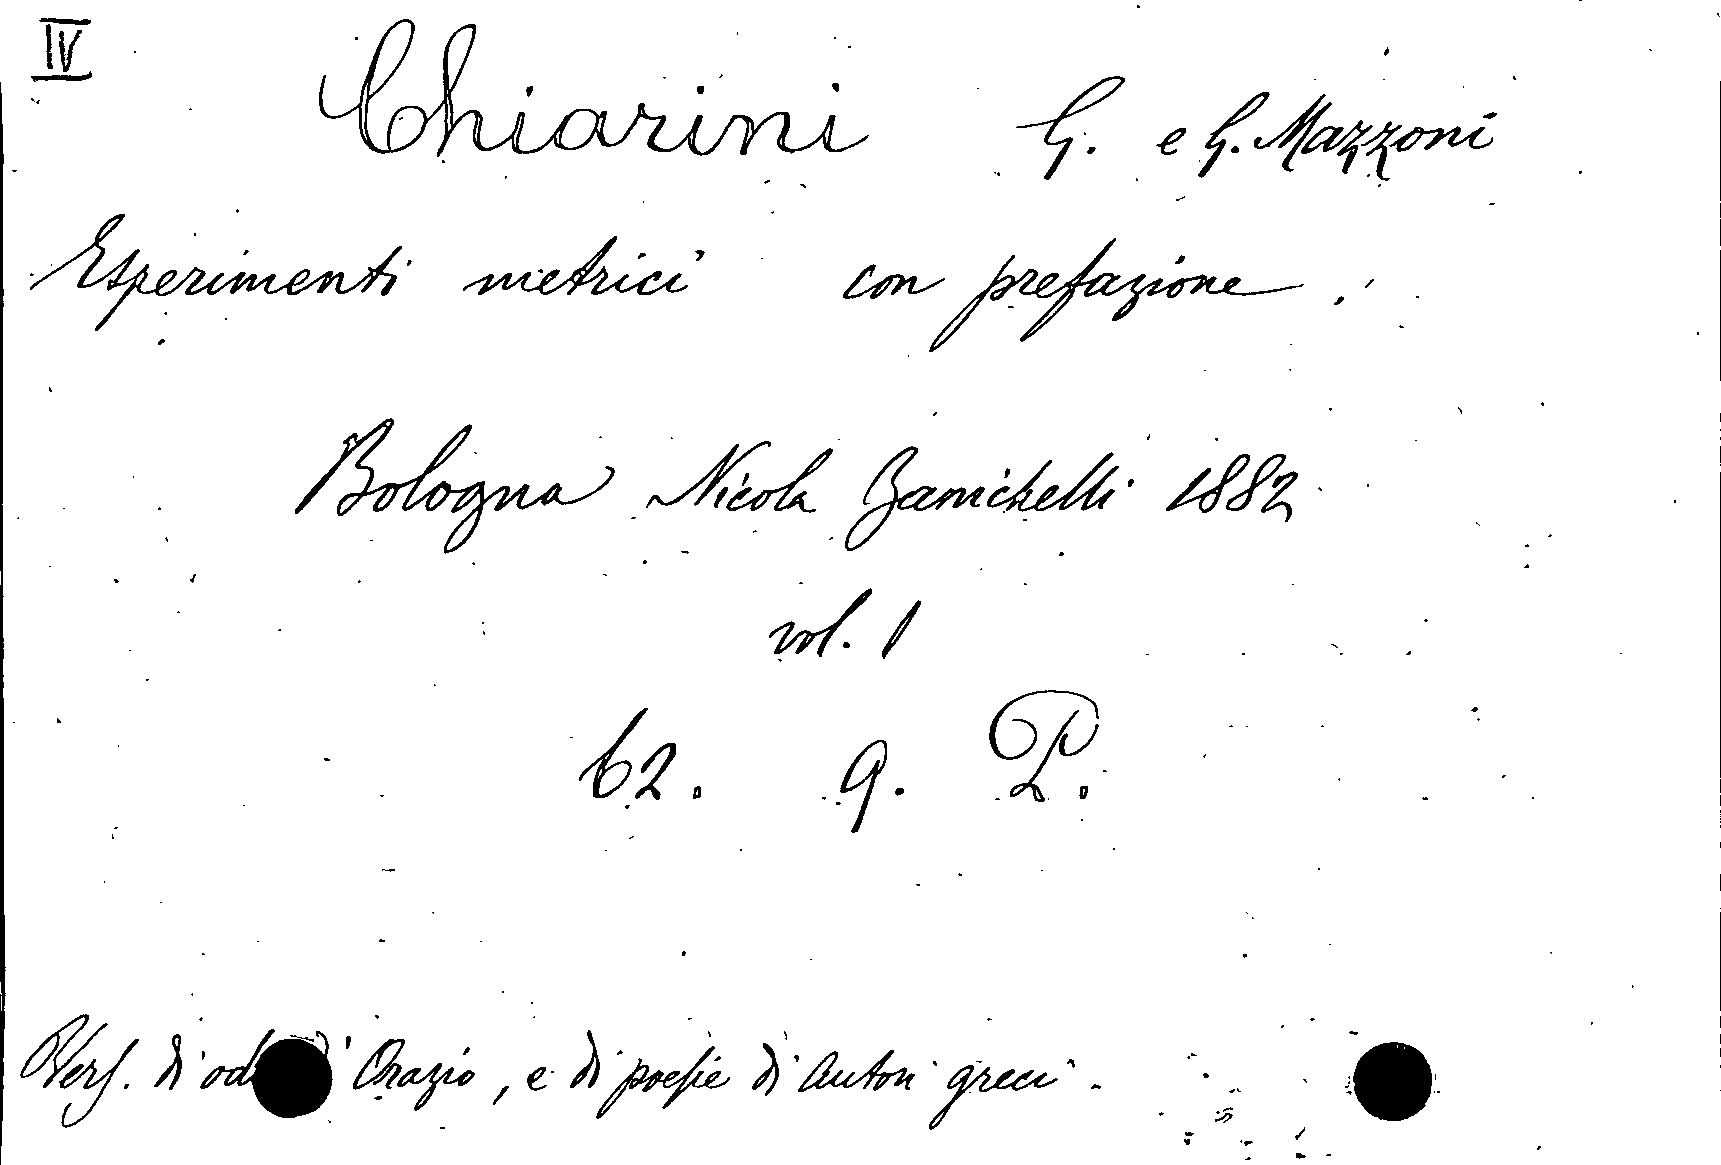 IV
Chiarini G. e G. Mazzoni
Esperimenti metrici con prefazione.
Bologna Nicola Zanichelli 1882
vol. 1
62. 9. P.
Vers. di Orazio, e di poesie di autori greci.